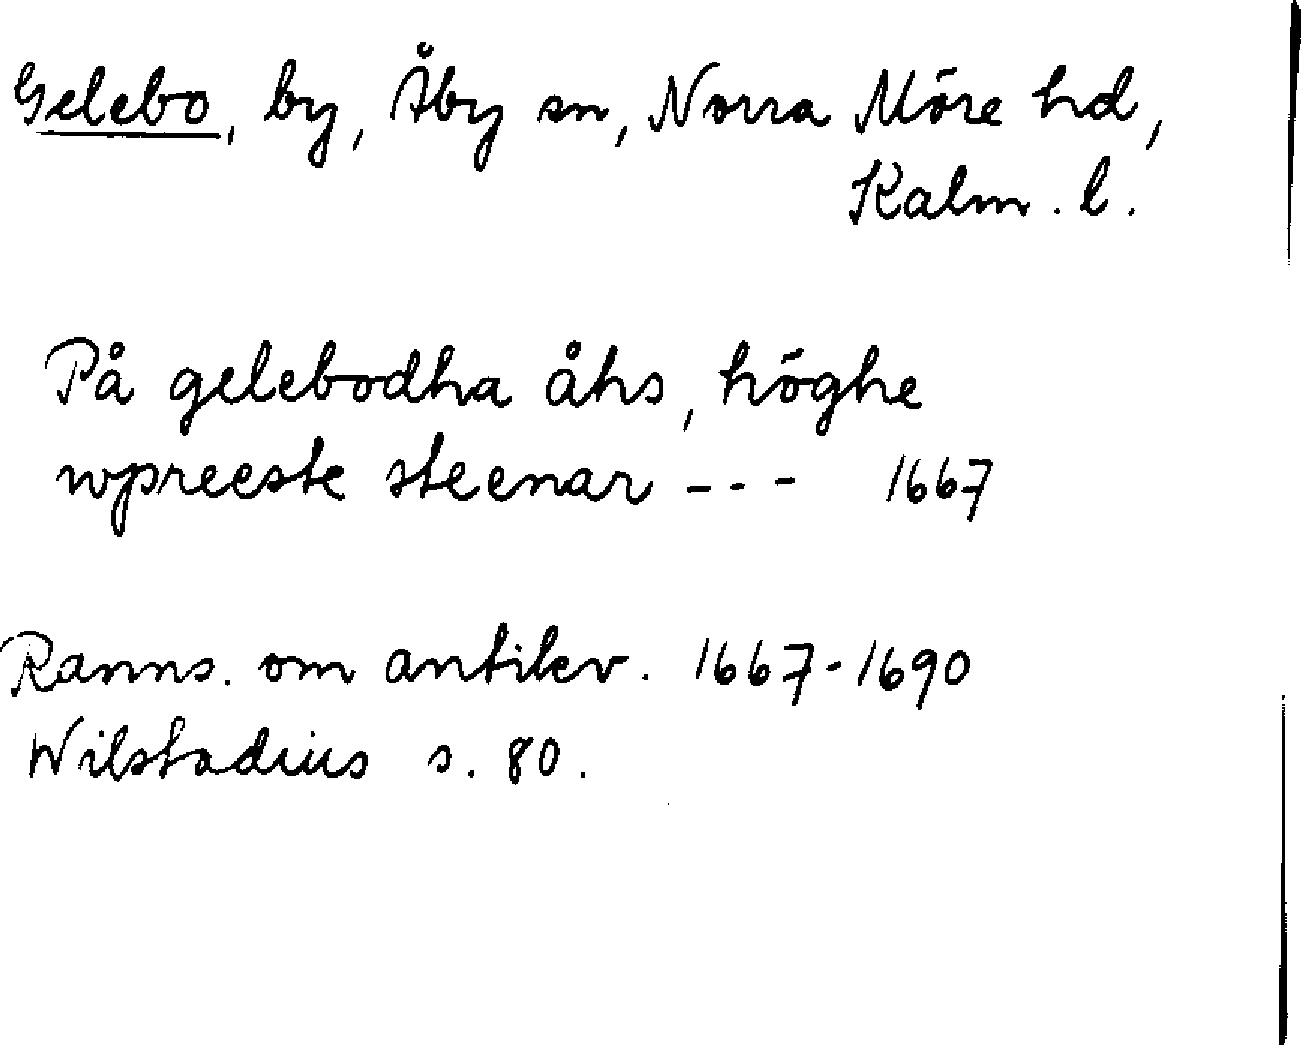 Gelebo, by, Åby sn, Norra Möre hd,
Kalm. l.
På gelebodha åhs, höghe
wpreeste steenar --- 1667
Ranns. om antikv. 1667-1690
Wilstadius s. 80.